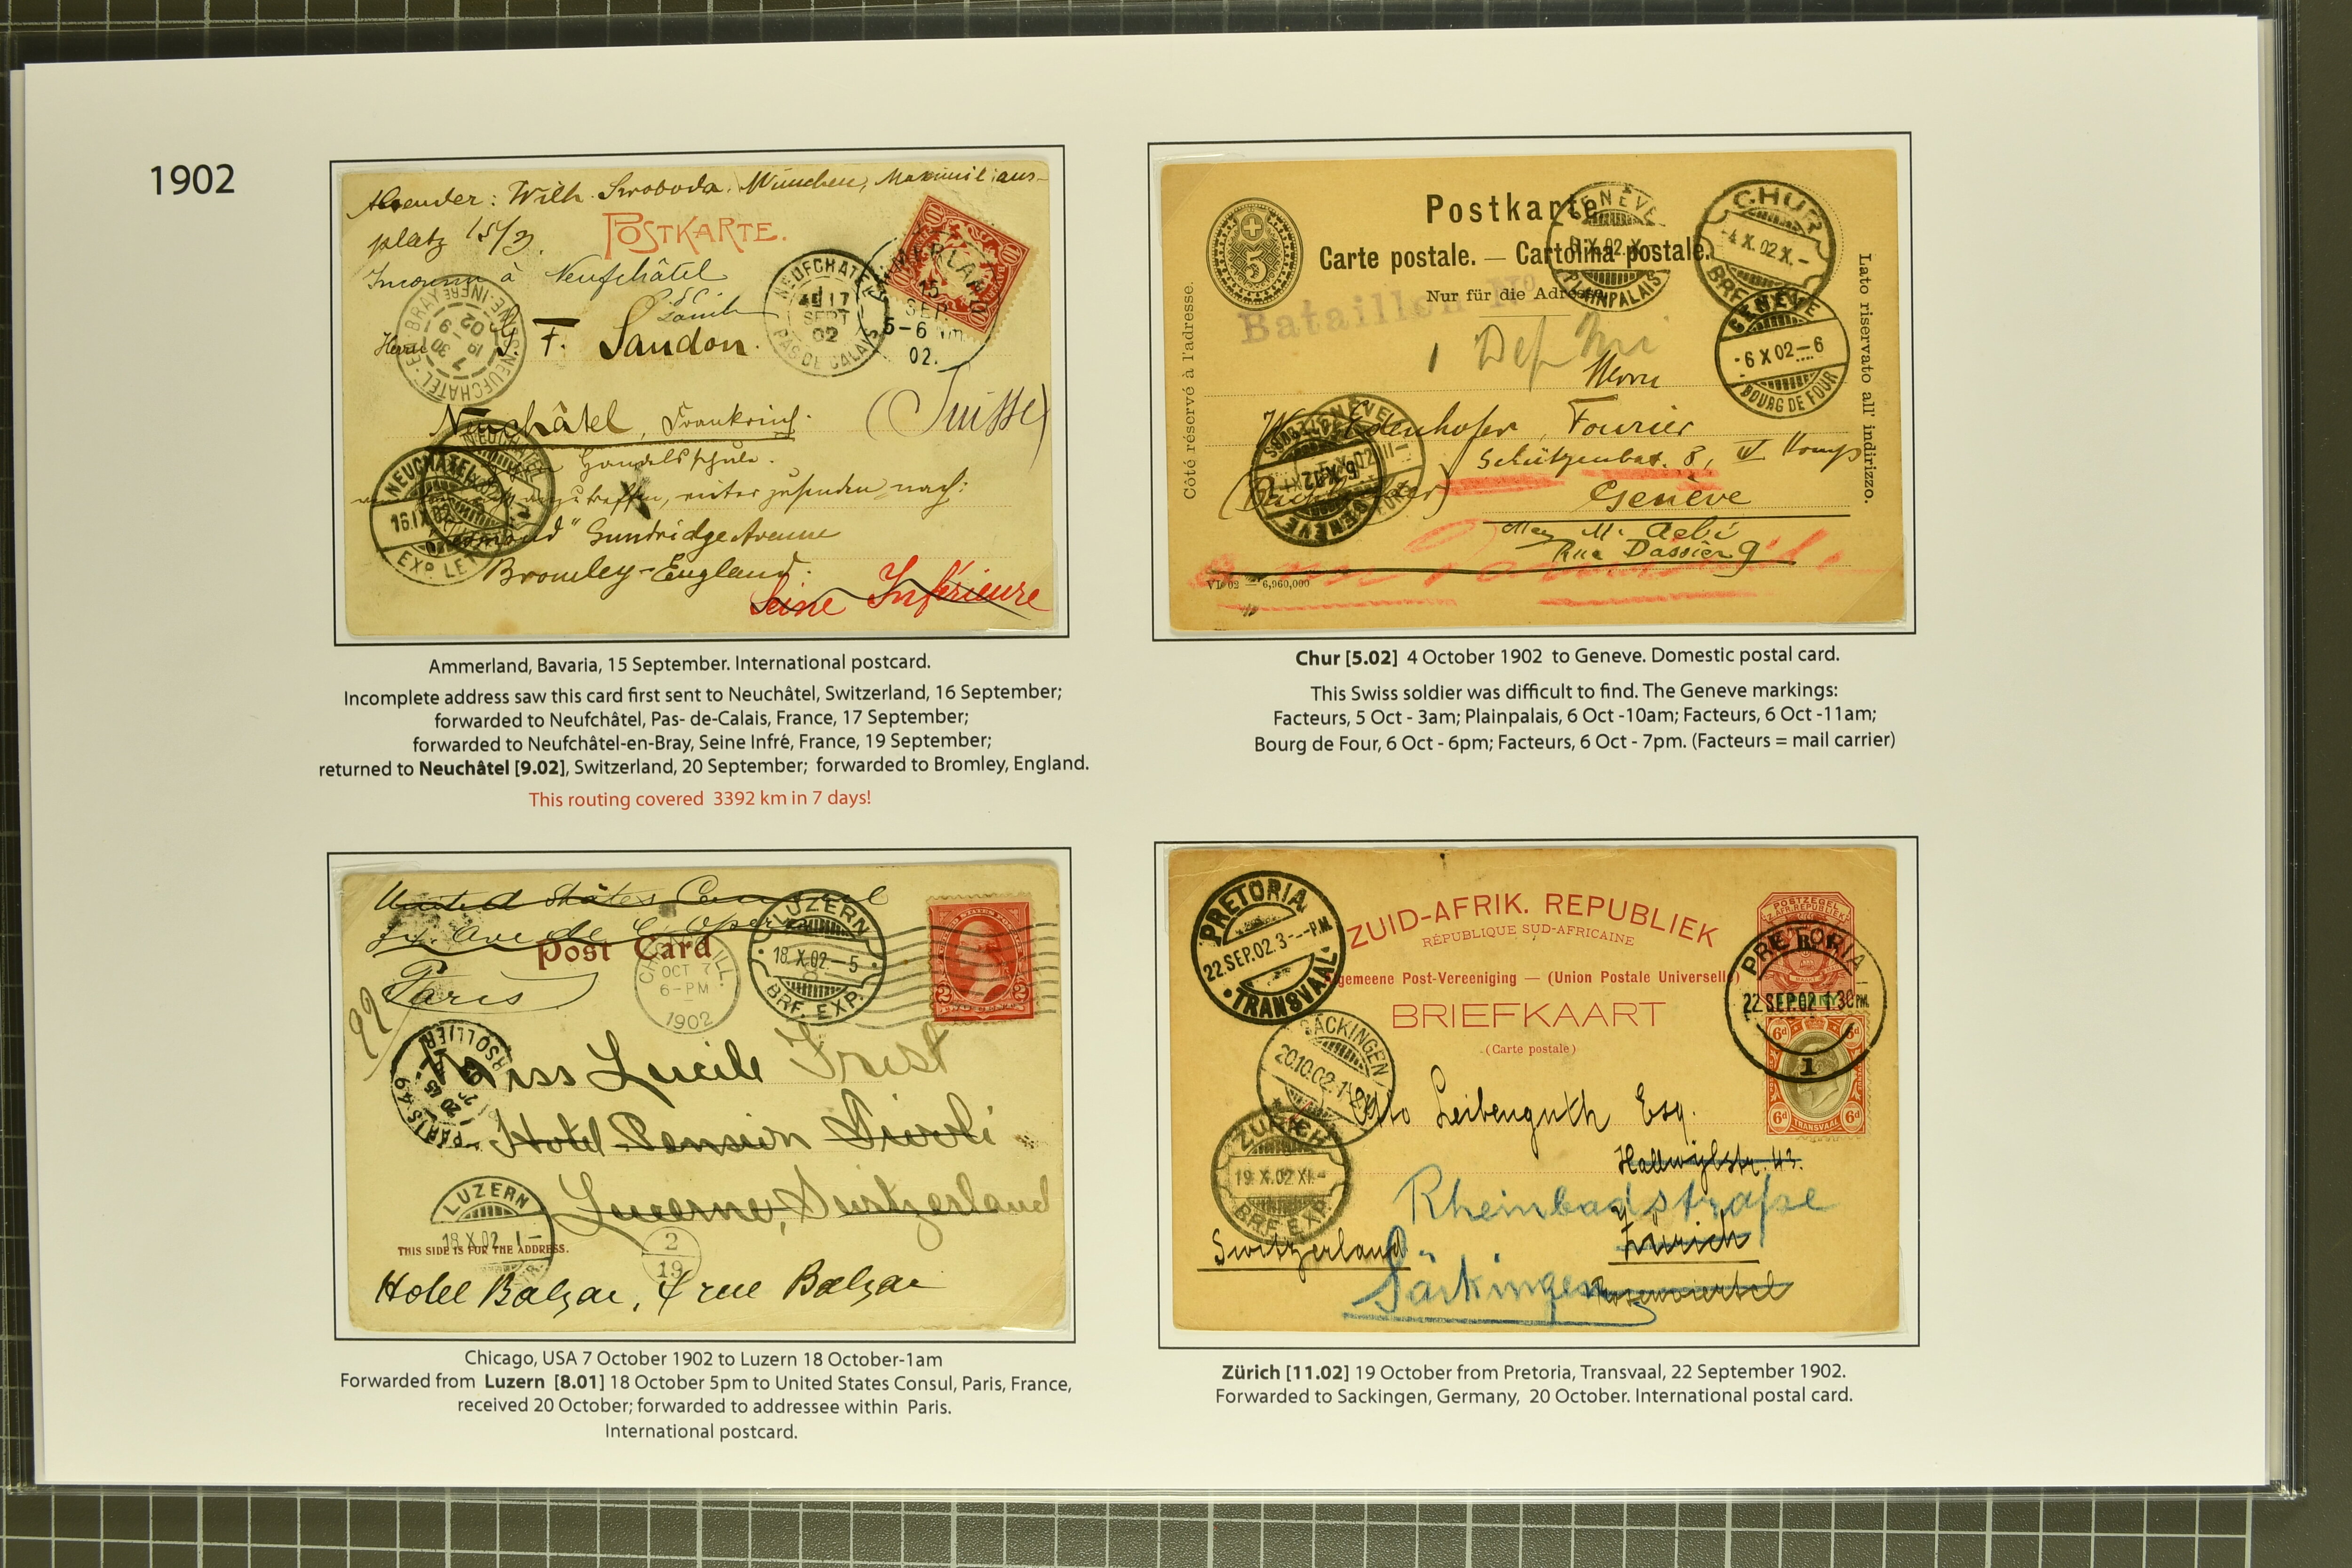 1902
Absender: Wilh. Swoboda. München, Maximilians-
platz 15/3.
POSTKARTE.
Inconnu à Neufchâtel
Herrn F. Sandon.
NEUFCHATEL
17
SEPT
02
PAS DE CALAIS
AMMERLAND
15
SEP.
5-6
02.
NEUFCHATEL-EN-BRAY SEINE-INFRE
7 30
19 - 9
02
Neuchâtel, Frankreich.
(Suisse)
Handelsschule.
anzutreffen, weiter zusenden nach:
Sundridge Avenue
Bromley-England.
Seine Inférieure
NEUCHATEL
16.IX.02
EXP. LET
Ammerland, Bavaria, 15 September. International postcard.
Incomplete address saw this card first sent to Neuchâtel, Switzerland, 16 September;
forwarded to Neufchâtel, Pas- de-Calais, France, 17 September;
forwarded to Neufchâtel-en-Bray, Seine Infré, France, 19 September;
returned to Neuchâtel [9.02], Switzerland, 20 September; forwarded to Bromley, England.
This routing covered 3392 km in 7 days!
Postkarte
Carte postale. — Cartolina postale.
Nur für die Adresse
5
Côté réservé à l'adresse.
Lato riservato all' indirizzo.
Bataillon No
GENÈVE
X.02.X
PLAINPALAIS
CHUR
-4 X.02 X.-
BRF.
GENÈVE
-6 X 02-6
BOURG DE FOUR
Herrn
Edenhofer, Fourier
Schützenbat. 8, IV Komp
Genève
GENEVE
chez M. Aebi
Rue Dassier 9
VI. 02 — 6,960,000
Chur [5.02] 4 October 1902 to Geneve. Domestic postal card.
This Swiss soldier was difficult to find. The Geneve markings:
Facteurs, 5 Oct - 3am; Plainpalais, 6 Oct -10am; Facteurs, 6 Oct -11am;
Bourg de Four, 6 Oct - 6pm; Facteurs, 6 Oct - 7pm. (Facteurs = mail carrier)
United States Consul
Ave de l'Opera
Post Card
Paris
99
CHICAGO, ILL.
OCT 7
6-PM
1902
LUZERN
18.X.02.-5
BRF. EXP.
2 2
Miss Lucile Frist
Hotel Pension Tivoli
Lucerne, Switzerland
PARIS 49
20 65
LUZERN
18.X.02 I-
THIS SIDE IS FOR THE ADDRESS.
2
19
Hotel Balzac, 4 rue Balzac
Chicago, USA 7 October 1902 to Luzern 18 October-1am
Forwarded from Luzern [8.01] 18 October 5pm to United States Consul, Paris, France,
received 20 October; forwarded to addressee within Paris.
International postcard.
PRETORIA
22.SEP.02.3-- P.M.
TRANSVAAL
ZUID-AFRIK. REPUBLIEK
RÉPUBLIQUE SUD-AFRICAINE
gemeene Post-Vereeniging — (Union Postale Universelle)
BRIEFKAART
(Carte postale)
POSTZEGEL
Z.AFR.REPUBLIEK
PRETORIA
22 SEP.02 1.30 PM.
1
6d 6d
6d 6d
TRANSVAAL
SÄCKINGEN
20.10.02.
Otto Leibenguth Esq.
Hallwylstr. 43.
ZÜRICH
19 X.02 XI-
BRF. EXP.
Rheinbadstraße
Switzerland Zürich
Säckingen
Zürich [11.02] 19 October from Pretoria, Transvaal, 22 September 1902.
Forwarded to Sackingen, Germany, 20 October. International postal card.